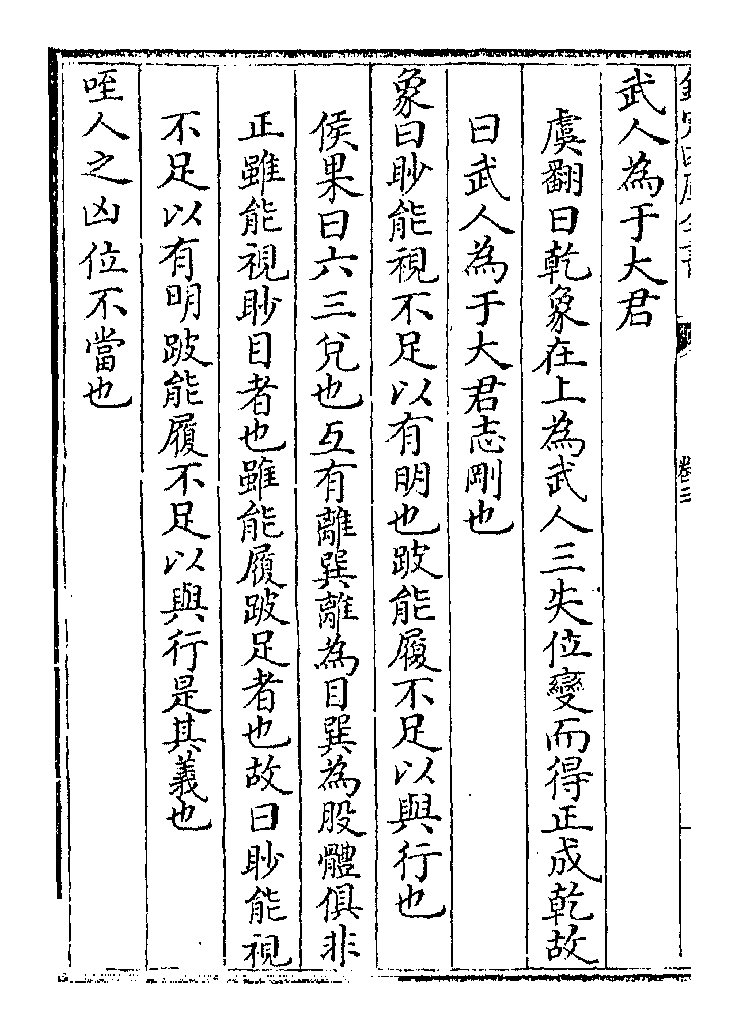 欽定四庫全書 卷三
武人為于大君
虞翻曰乾象在上為武人三失位變而得正成乾故
曰武人為于大君志剛也
象曰眇能視不足以有明也跛能履不足以與行也
侯果曰六三兌也互有離巽離為目巽為股體俱非
正雖能視眇目者也雖能履跛足者也故曰眇能視
不足以有明跛能履不足以與行是其義也
咥人之凶位不當也